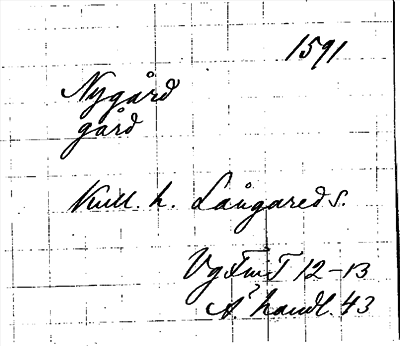 1591
Nygård
gård
Kull. h. Långareds s.
VgFmT 12-13
A? handl. 43